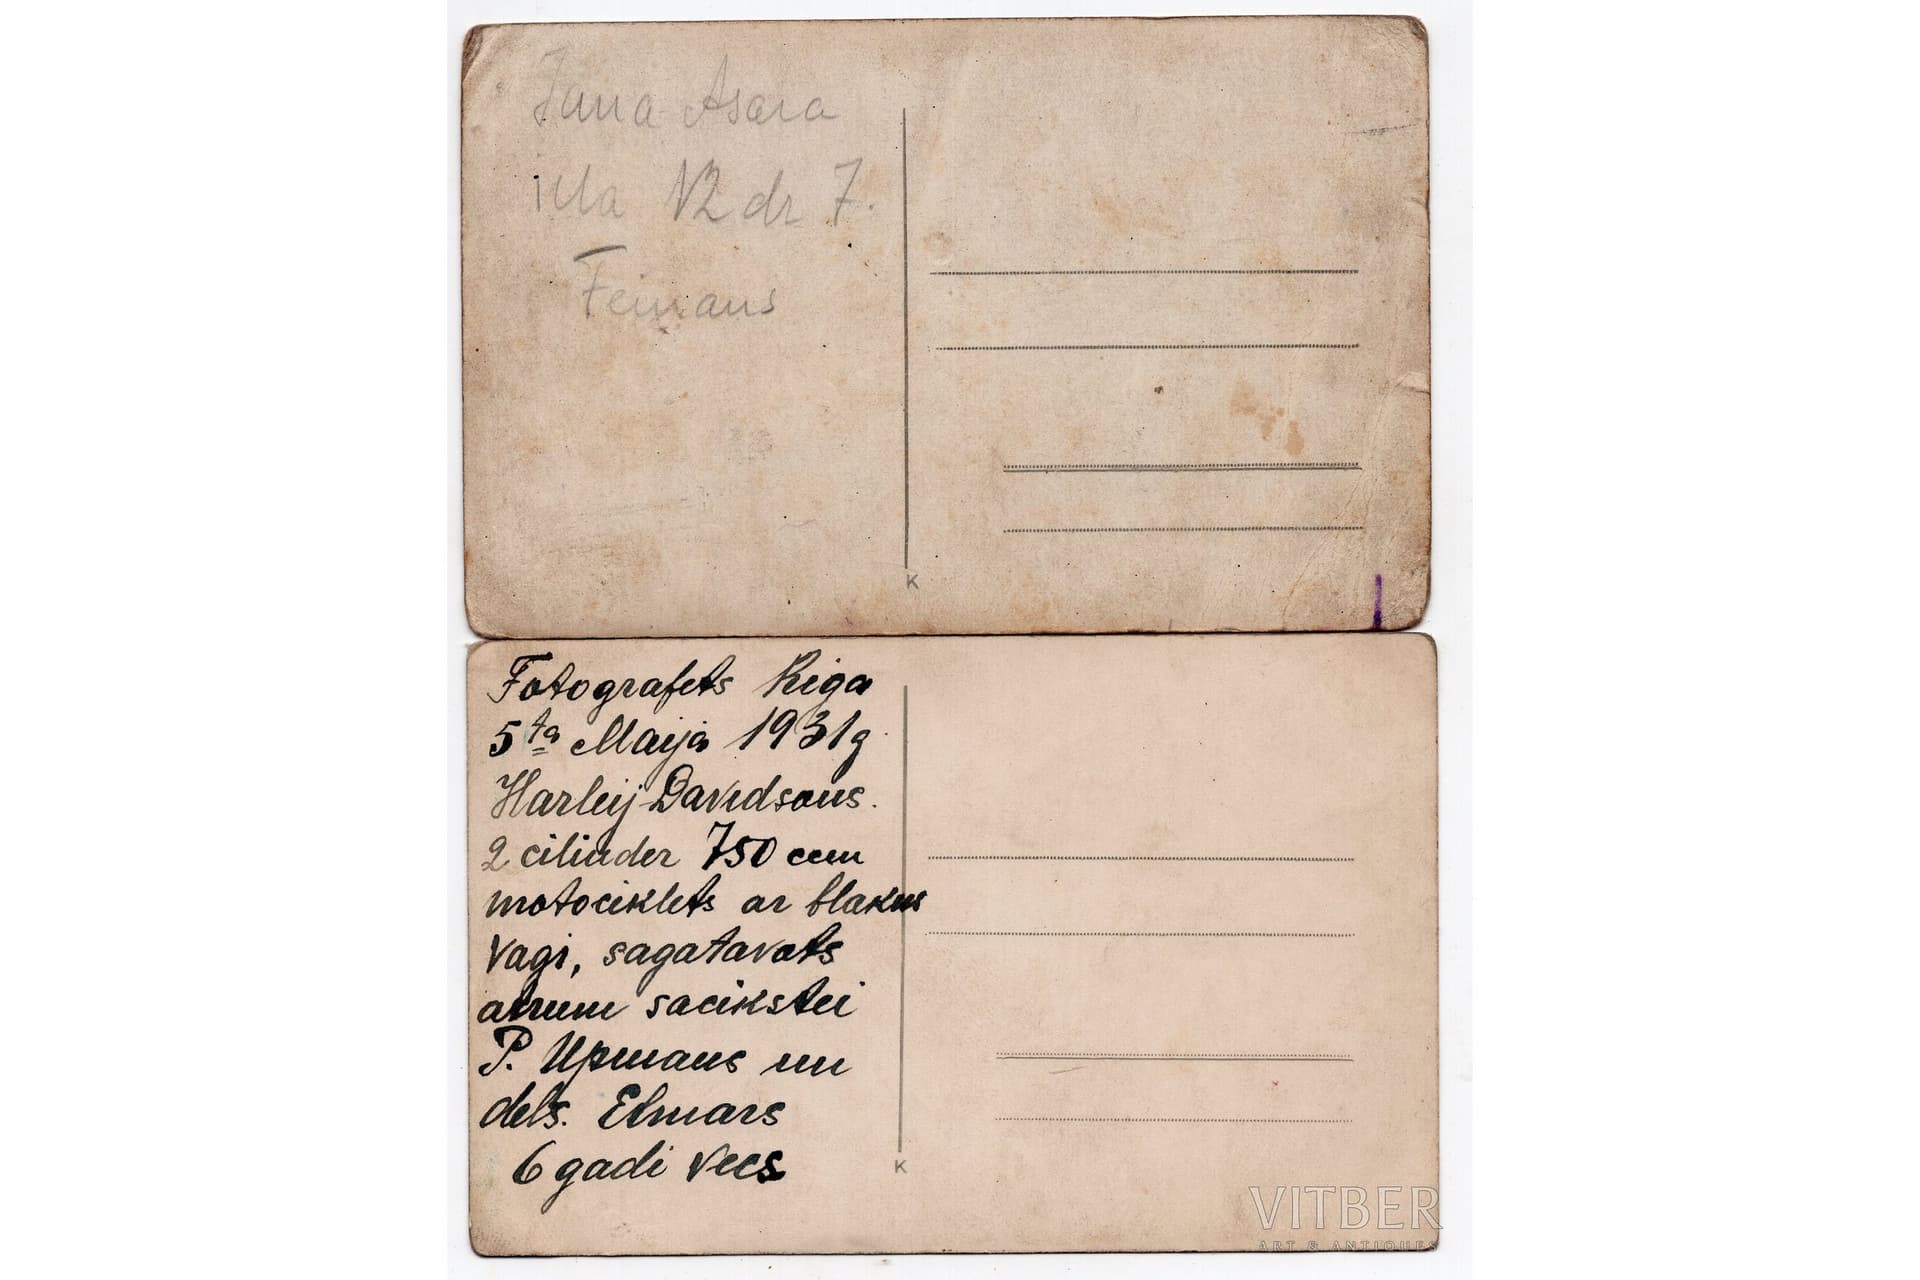 Jana Asara
iela 12 dz 7.
Feimans
K
Fotografets Riga
5ta Maijā 1931g.
Harleij-Davidsons.
2 cilinder 750 ccm
motociklets ar blakus
vagi, sagatavots
atrum sacikstei
P. Upmans un
dels. Elmars
6 gadi vecs
K
VITBER
ART & ANTIQUES